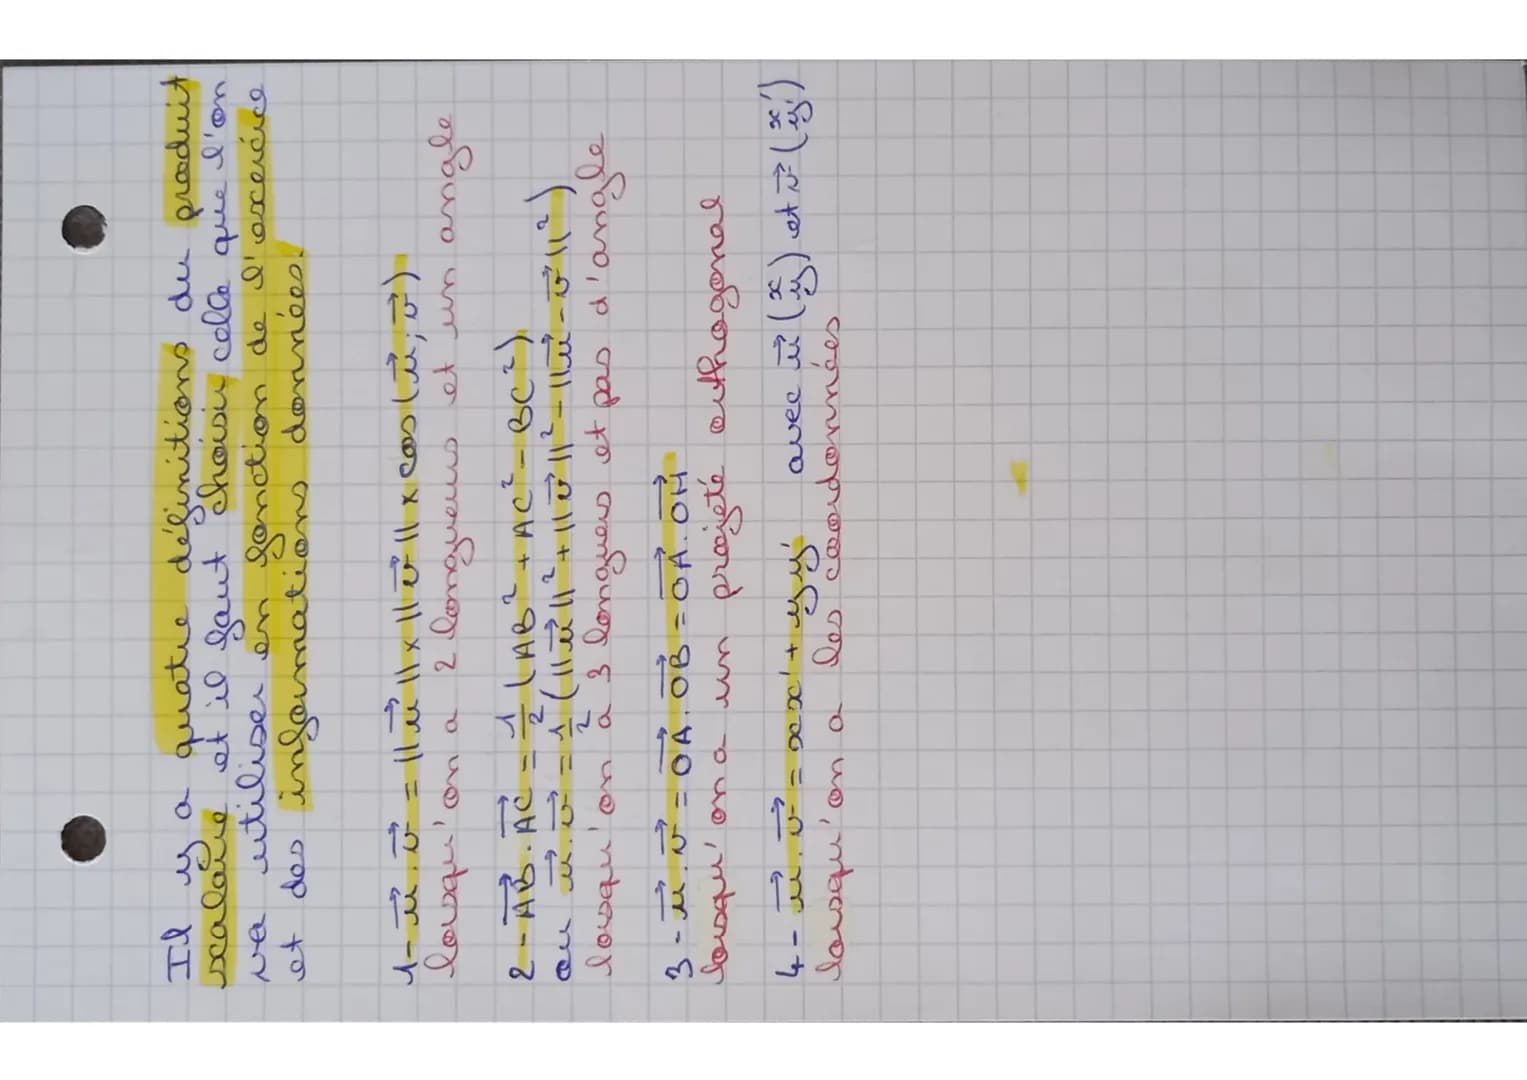 Il y a quatre définitions du produit
scalaire et il faut choisir celle que l'on
va utiliser en fonction de l'exercice
et des informations données.
1- u⃗ . v⃗ = ||u⃗|| x ||v⃗|| x cos(u⃗ ; v⃗)
lorsqu'on a 2 longueurs et un angle
2 - AB⃗ . AC⃗ = 1/2 (AB² + AC² - BC²)
ou u⃗ . v⃗ = 1/2 (||u⃗||² + ||v⃗||² - ||u⃗ - v⃗||²)
lorsqu'on a 3 longueurs et pas d'angle
3 - u⃗ . v⃗ = OA⃗ . OB⃗ = OA⃗ . OH⃗
lorsqu'on a un projeté orthogonal
4 - u⃗ . v⃗ = xx' + yy' avec u⃗ (x y) et v⃗ (x' y')
lorsqu'on a les coordonnées